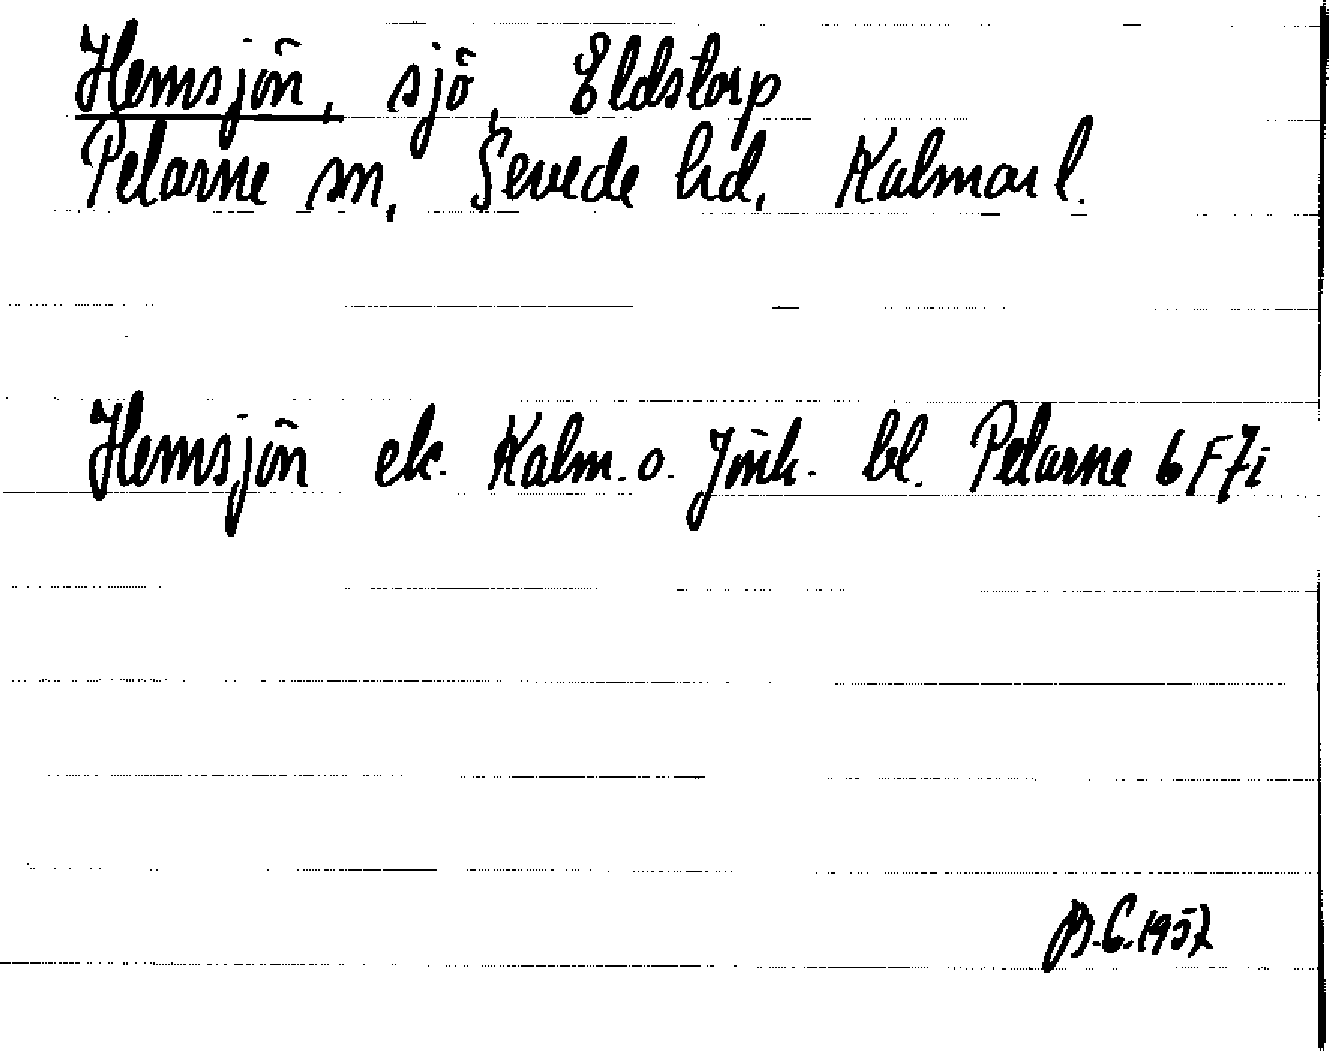 Hemsjön, sjö, Eldstorp
Pelarne sn, Sevede hd, Kalmar l.
Hemsjön ek. Kalm. o. Jönk. bl. Pelarne 6F7i
B.C. 1957